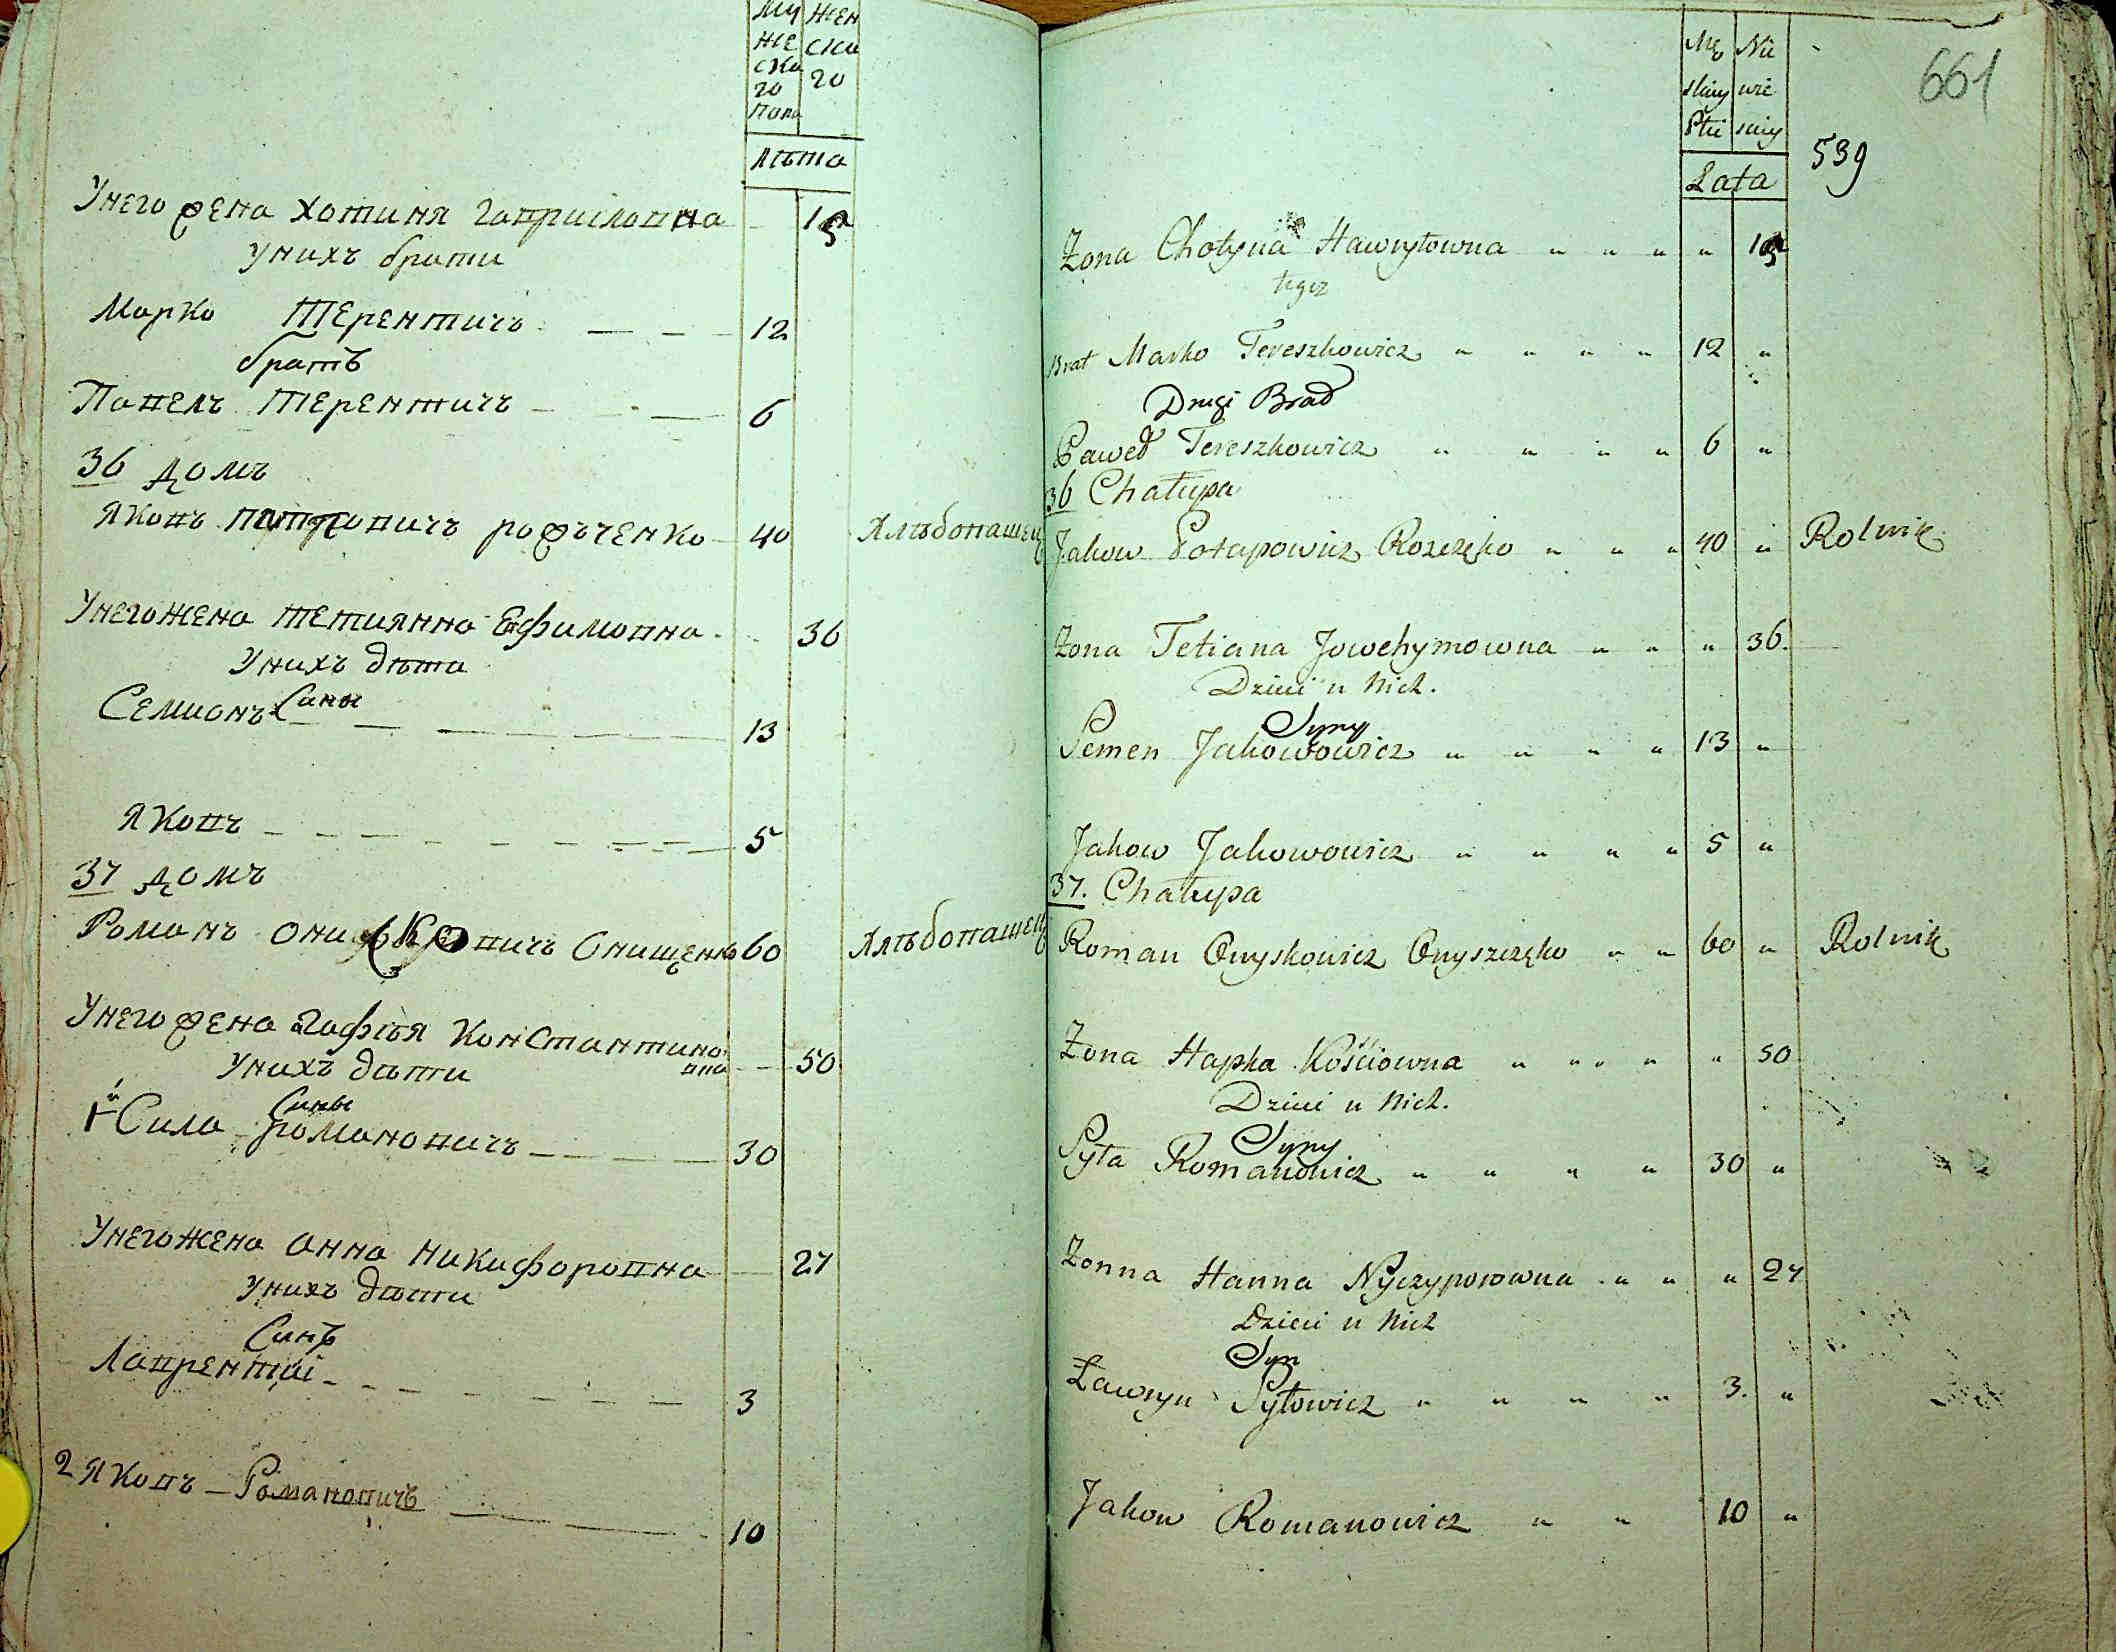 Му Жен
же ски
ска го
го
пола
Лѣта
Унего жена Хотиня Гаприлопна 15
Унихъ брати
Марко Терентичъ 12
братъ
Папелъ Терентичъ 6
36 домъ
Якопъ рожъченко 40 Хлѣбопашец
Унего жена Тетиянна Ефимопна 36
Унихъ дѣти
Сины
Семионъ 13
Якопъ 5
37 домъ
Романъ Онищенко 60 Хлѣбопашец
Унего жена Гафѣя Константино
пна 50
Унихъ дѣти
Сины
1й Сила романопичъ 30
Унего жена Анна Никифоропна 27
Унихъ дѣти
Синъ
Лапрентій 3
2 Якопъ Романопичъ 10
661
Mę Nie
skiey wie
Płci sciey
539
Lata
Żona Chotyna Hawryłowna " " " " 15
tegoz
Brat Marko Tereszkowicz " " " " 12 "
Drugi Brad
Paweł Tereszkowicz " " " " 6 "
36 Chałupa
Jakow Potapowicz Rozczęko " " " 40 " Rolnik
Żona Tetiana Jowchymowna " " " 36.
Dzieci u Nich.
Syny
Semen Jakowowicz " " " " 13 "
Jakow Jakowowicz " " " " 5 "
37. Chałupa
Roman Onyskowicz Onyszczęko " " 60 " Rolnik
Żona Hapka Kościowna " " " " 50
Dzieci u Nich.
Syny
Syła Romanowicz " " " " 30 "
Żonna Hanna Nyczyporowna " " " 27
Dzieci u Nich
Syn
Ławryn Syłowicz " " " " 3. "
Jakow Romanowicz " " 10 "